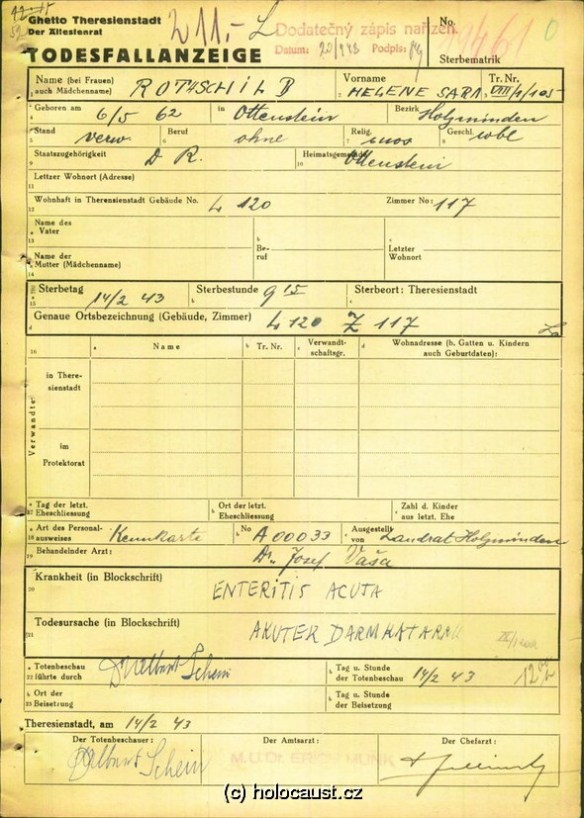 Ghetto Theresienstadt
Der Ältestenrat
211.- L
Dodatečný zápis nařízen.
Datum: Podpis:
No.
TODESFALLANZEIGE
Sterbematrik
1 Name (bei Frauen) auch Mädchenname) ROTHSCHILD Vorname HELENE SARA Tr. Nr. VIII/1/105
Geboren am 6/5 62 in Ottenstein Bezirk Holzminden
Stand verw Beruf ohne Relig. mos Geschl. wbl
Staatszugehörigkeit D. R. Heimatsgemeinde Ottenstein
Letzter Wohnort (Adresse)
Wohnhaft in Theresienstadt Gebäude No. L 120 Zimmer No: 117
Name des Vater
Be-ruf
Letzter Wohnort
Name der Mutter (Mädchenname)
Sterbetag 14/2 43 Sterbestunde 9 15 Sterbeort: Theresienstadt
Genaue Ortsbezeichnung (Gebäude, Zimmer) L 120 Z 117
Name Tr. Nr. Verwandt-schaftsgr. Wohnadresse (b. Gatten u. Kindern auch Geburtdaten):
Verwandte
in There-sienstadt
im Protektorat
Tag der letzt. Eheschliessung Ort der letzt. Eheschliessung Zahl d. Kinder aus letzt. Ehe
Art des Personal-ausweises Kennkarte No A 00033 Ausgestellt von Landrat Holzminden
Behandelnder Arzt: Dr. Josef Vaša
Krankheit (in Blockschrift) ENTERITIS ACUTA
Todesursache (in Blockschrift) AKUTER DARMKATARRH
Totenbeschau führte durch Dr Albert Schein Tag u. Stunde der Totenbeschau 14/2 43
Ort der Beisetzung Tag u. Stunde der Beisetzung
Theresienstadt, am 14/2 43
Der Totenbeschauer: Der Amtsarzt: Der Chefarzt:
Dr Albert Schein M.U.Dr. ERICH MUNK
(c) holocaust.cz